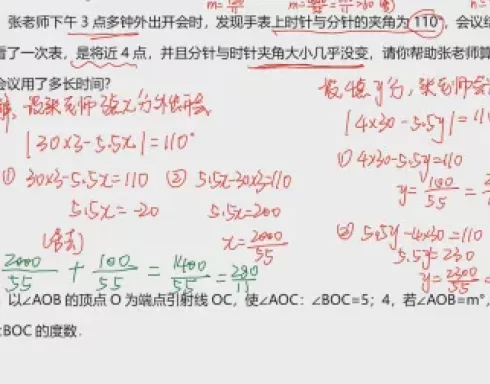 张老师下午 3 点多钟外出开会时，发现手表上时针与分针的夹角为 110°，会议结
看了一次表，是将近 4 点，并且分针与时针夹角大小几乎没变，请你帮助张老师算
会议用了多长时间?
解，设张老师 3点x分外出开会 设4点y分，张老师
|30×3-5.5x|=110° |4×30-5.5y|=11
① 30×3-5.5x=110 ② 5.5x-30×3=110 ① 4×30-5.5y=110
5.5x=-20 5.5x=200 y=100/55
(舍去) x=2000/55 ② 5.5y-4×30=110
5.5y=230
2000/55 + 100/55 = 1400/55 = 280/11 y=2300/55
以∠AOB 的顶点 O 为端点引射线 OC，使∠AOC：∠BOC=5；4，若∠AOB=m°，
∠BOC 的度数.